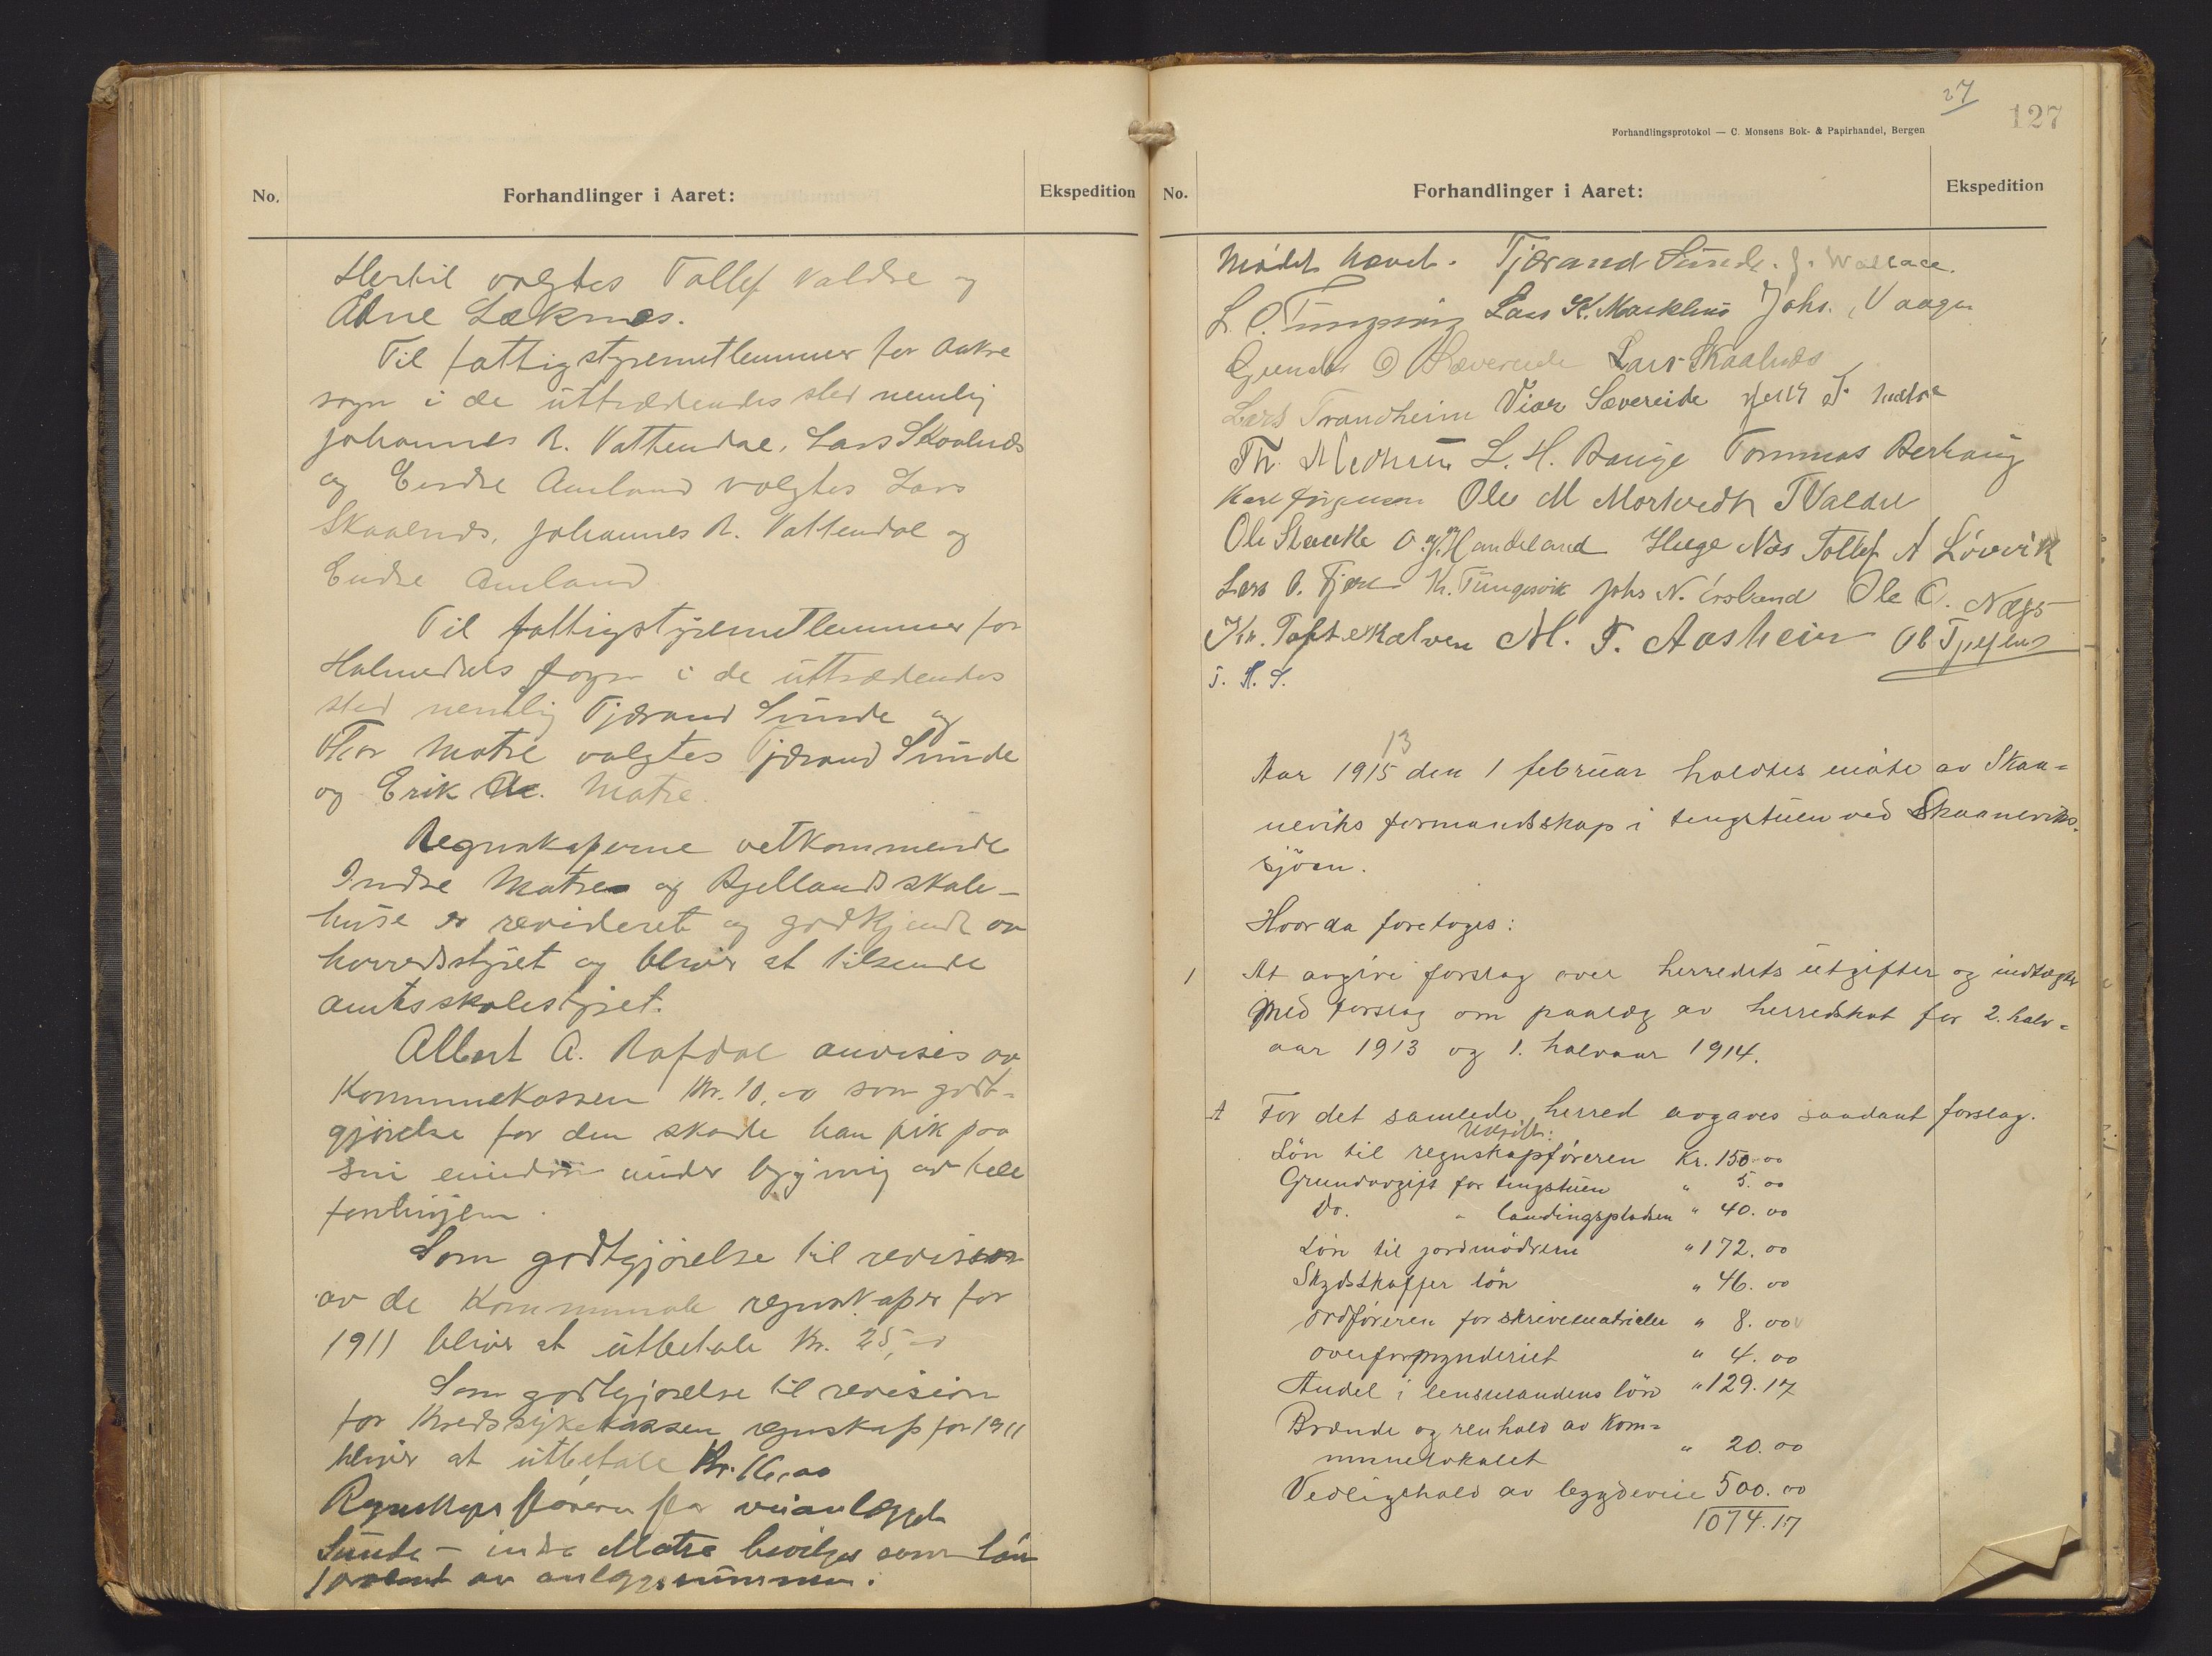 No.
Forhandlinger i Aaret:
Ekspedition
Hertil valgtes Tollef Valdre og
Arne Læknes.
Til fattigstyremetlemmer for Aakre
sogn i de uttrædendes sted nemlig
Johannes R. Vattendal, Lars Skaalnæs
og Endre Amland valgtes Lars
Skaalnæs, Johannes R. Vattendal og
Endre Amland
Til fattigstyremetlemmer for
Holmedals sogn i de uttrædendes
sted nemlig Tjærand Sunde og
Thor Matre valgtes Tjærand Sunde
og Erik Matre
Regnskaperne vetkommende
Indre Matre og Bjellands skole-
huse er revideret og godkjendt av
herredsstyret og blir at tilsende
amtsskolestyret.
Albert A. Rafdal anvises av
Kommunekassen Kr. 10,00 som godt-
gjörelse for den skade han fik paa
sin eiendom under bygning av tele
fonlinjen.
Som godtgjörelse til revision
av de Kommunale regnskaper for
1911 blir at utbetale Kr. 25,00
Som godtgjörelse til revision
for Kredssykekassen regnskap for 1911
blir at utbetale Kr. 16,00
Regnskapsföreren for veianlægget
Sunde - indre Matre bevilges som lön
1 procent av anlægssummen.
27
127
Forhandlingsprotokol — C. Monsens Bok- & Papirhandel, Bergen
No.
Forhandlinger i Aaret:
Ekspedition
Mödet hævet. Tjærand Sunde. J. Wallace.
L. O. Tungesvig Lars K. Markhus Johs. Vaage
Gunder O Sævereide Lars Skaalnæs
Lars Trondheim Viar Sævereide
Th. Medhus L. H. Bauge Tommas Berhaug
Karl Jörgensen Ole M Mortvedt T Valdre
Ole Stakke O. J. Handeland Helge Næs Tollef A Lövvik
Lars O. Fjære K. Tungesvik Johs N. Ersland Ole O. Næss
Kn. Tofte Kalven M. T. Aasheim
T. H. S.
13
Aar 1915 den 1 februar holdtes möte av Skaa-
neviks formandskap i tingstuen ved Skaaneviks-
sjöen.
Hvor da foretoges:
1 At avgive forslag over herredets utgifter og indtægter
med forslag om paalæg av herredskat for 2. halv-
aar 1913 og 1. halvaar 1914.
A For det samlede herred avgaves saadant forslag.
Utgift:
Lön til regnskapsföreren Kr. 150.00
Grundavgift for tingstuen " 5.00
Do. " landingspladsen " 40.00
Lön til jordmödrene " 172.00
Skydsskaffer lön " 46.00
Ordföreren for skrivematrieler " 8.00
overformynderiet " 4.00
Andel i lensmandens lön " 129.17
Brænde og renhold av Kom-
munelokalet " 20.00
Vedligehold av bygdeveie 500.00
1074.17